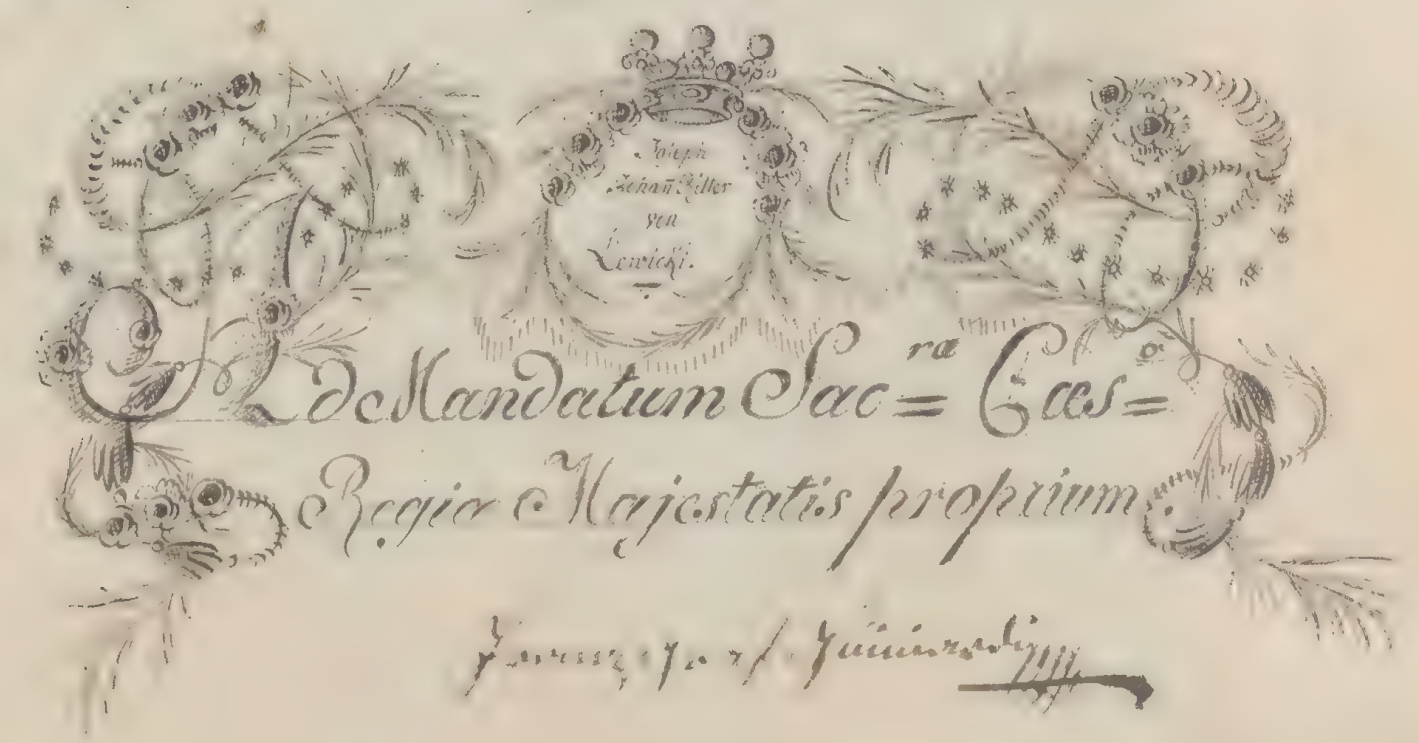 Joseph
Johañ Ritter
von
Lewicki.
Ad Mandatum Sac=ræ Cæs=æ
Regiæ Majestatis proprium.